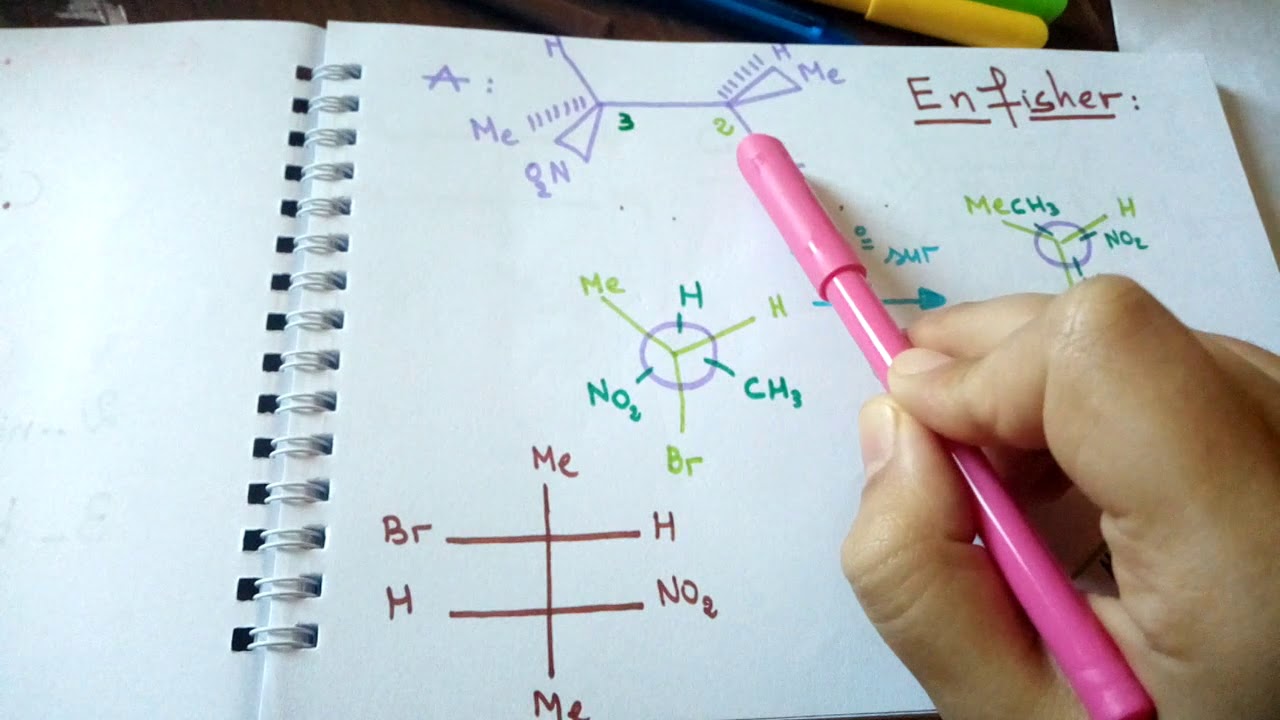 A :
H
Me
O₂N
3
2
H
Me
En fisher :
Me CH₃ H
NO₂
sur
Me
H
H
NO₂
CH₃
Br
Me
Br H
H NO₂
Me